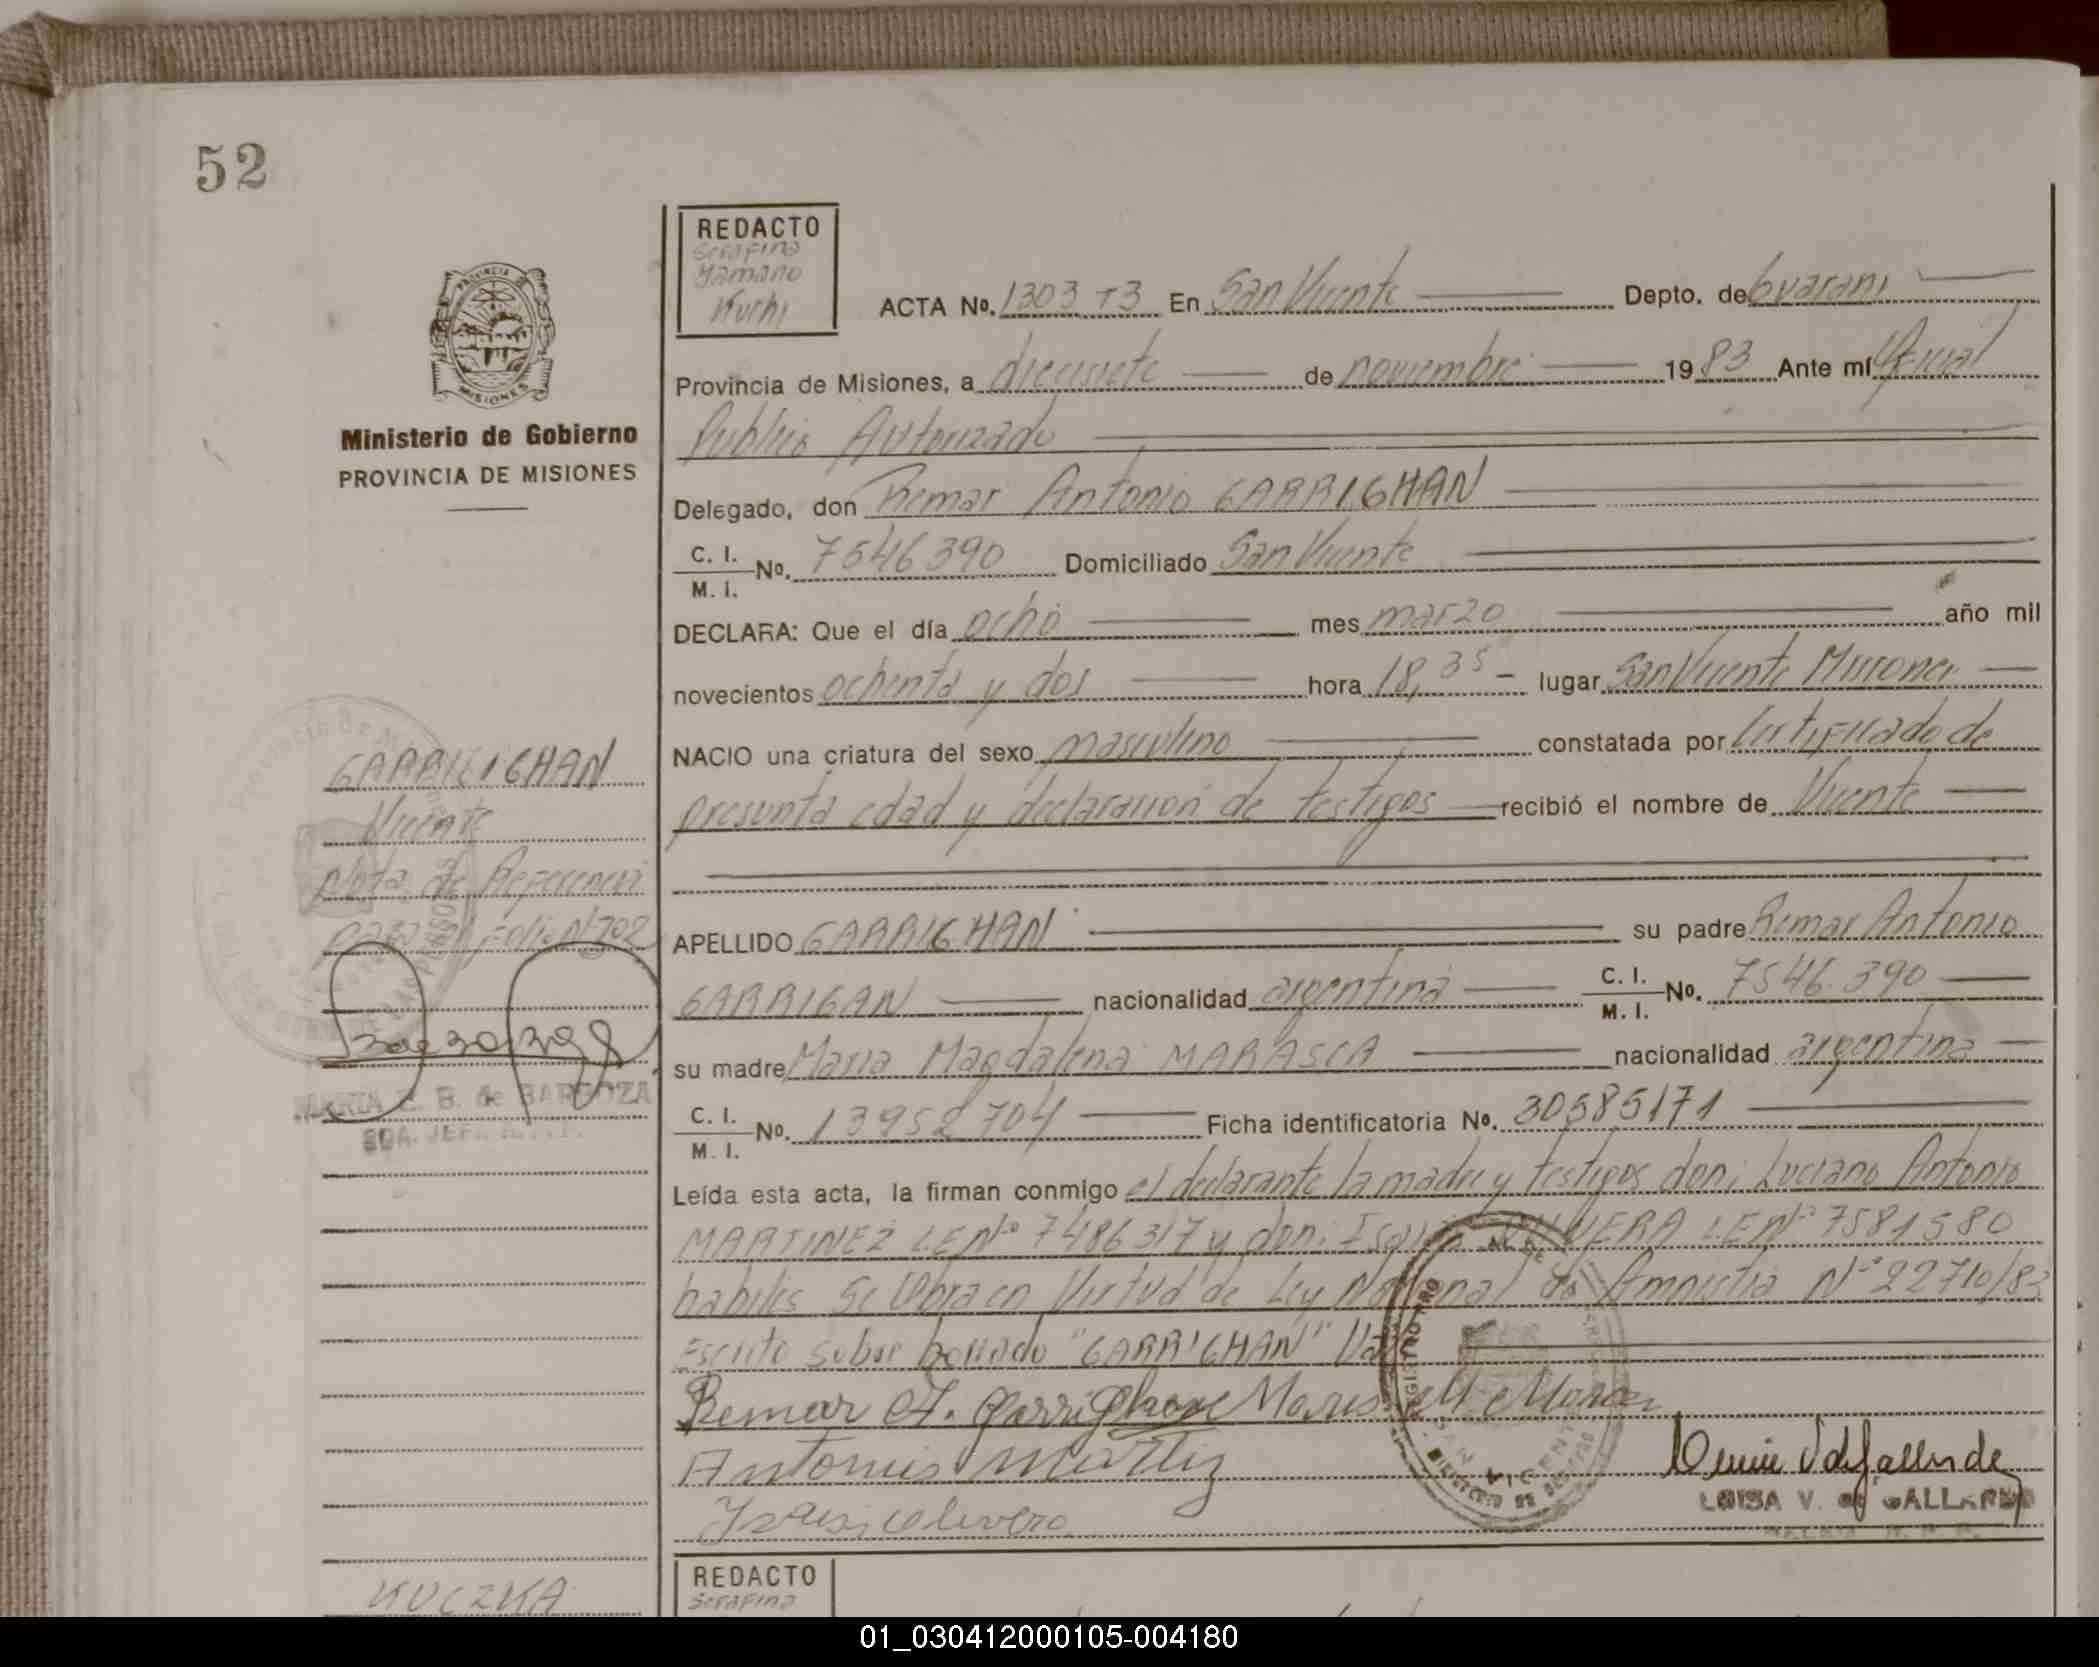 52
REDACTO
Serafina
Yamano
Kuchi
ACTA No. 1303 T3 En San Vicente Depto. de Guarani
Provincia de Misiones, a diecisiete de noviembre 1983 Ante mí Oficial
Publico Autorizado
Delegado, don Remar Antonio GARRIGHAN
C. I.
M. I. No. 7546390 Domiciliado San Vicente
DECLARA: Que el día ocho mes marzo año mil
novecientos ochenta y dos hora 18,35 - lugar San Vicente Misiones
NACIO una criatura del sexo masculino constatada por Certificado de
presunta edad y declaración de testigos recibió el nombre de Vicente
APELLIDO GARRIGHAN su padre Remar Antonio
GARRIGAN nacionalidad argentina C. I.
M. I. No. 7546.390
su madre Maria Magdalena MARASCA nacionalidad argentina
C. I.
M. I. No. 13952704 Ficha identificatoria No. 30585171
Leída esta acta, la firman conmigo el declarante la madre y testigos don: Luciano Antonio
MARTINEZ L.E Nº 7486317 y don: L.E Nº 7581580
habiles Se labra en Virtud de Ley Nacional de Amnistia Nº 22710/83
Escrito sobre borrado "GARRIGHAN" Vale
Remar A. Garrighan
Antonio
LUISA V. de GALLARDO
REGISTRO
SAN VICENTE
PROVINCIA
MISIONES
Ministerio de Gobierno
PROVINCIA DE MISIONES
GARRIGHAN
Vicente
Nota de Referencia
Folio Nº 702
MARIA E. B. de BARBOZA
KUCZKA
REDACTO
Serafina
01_030412000105-004180